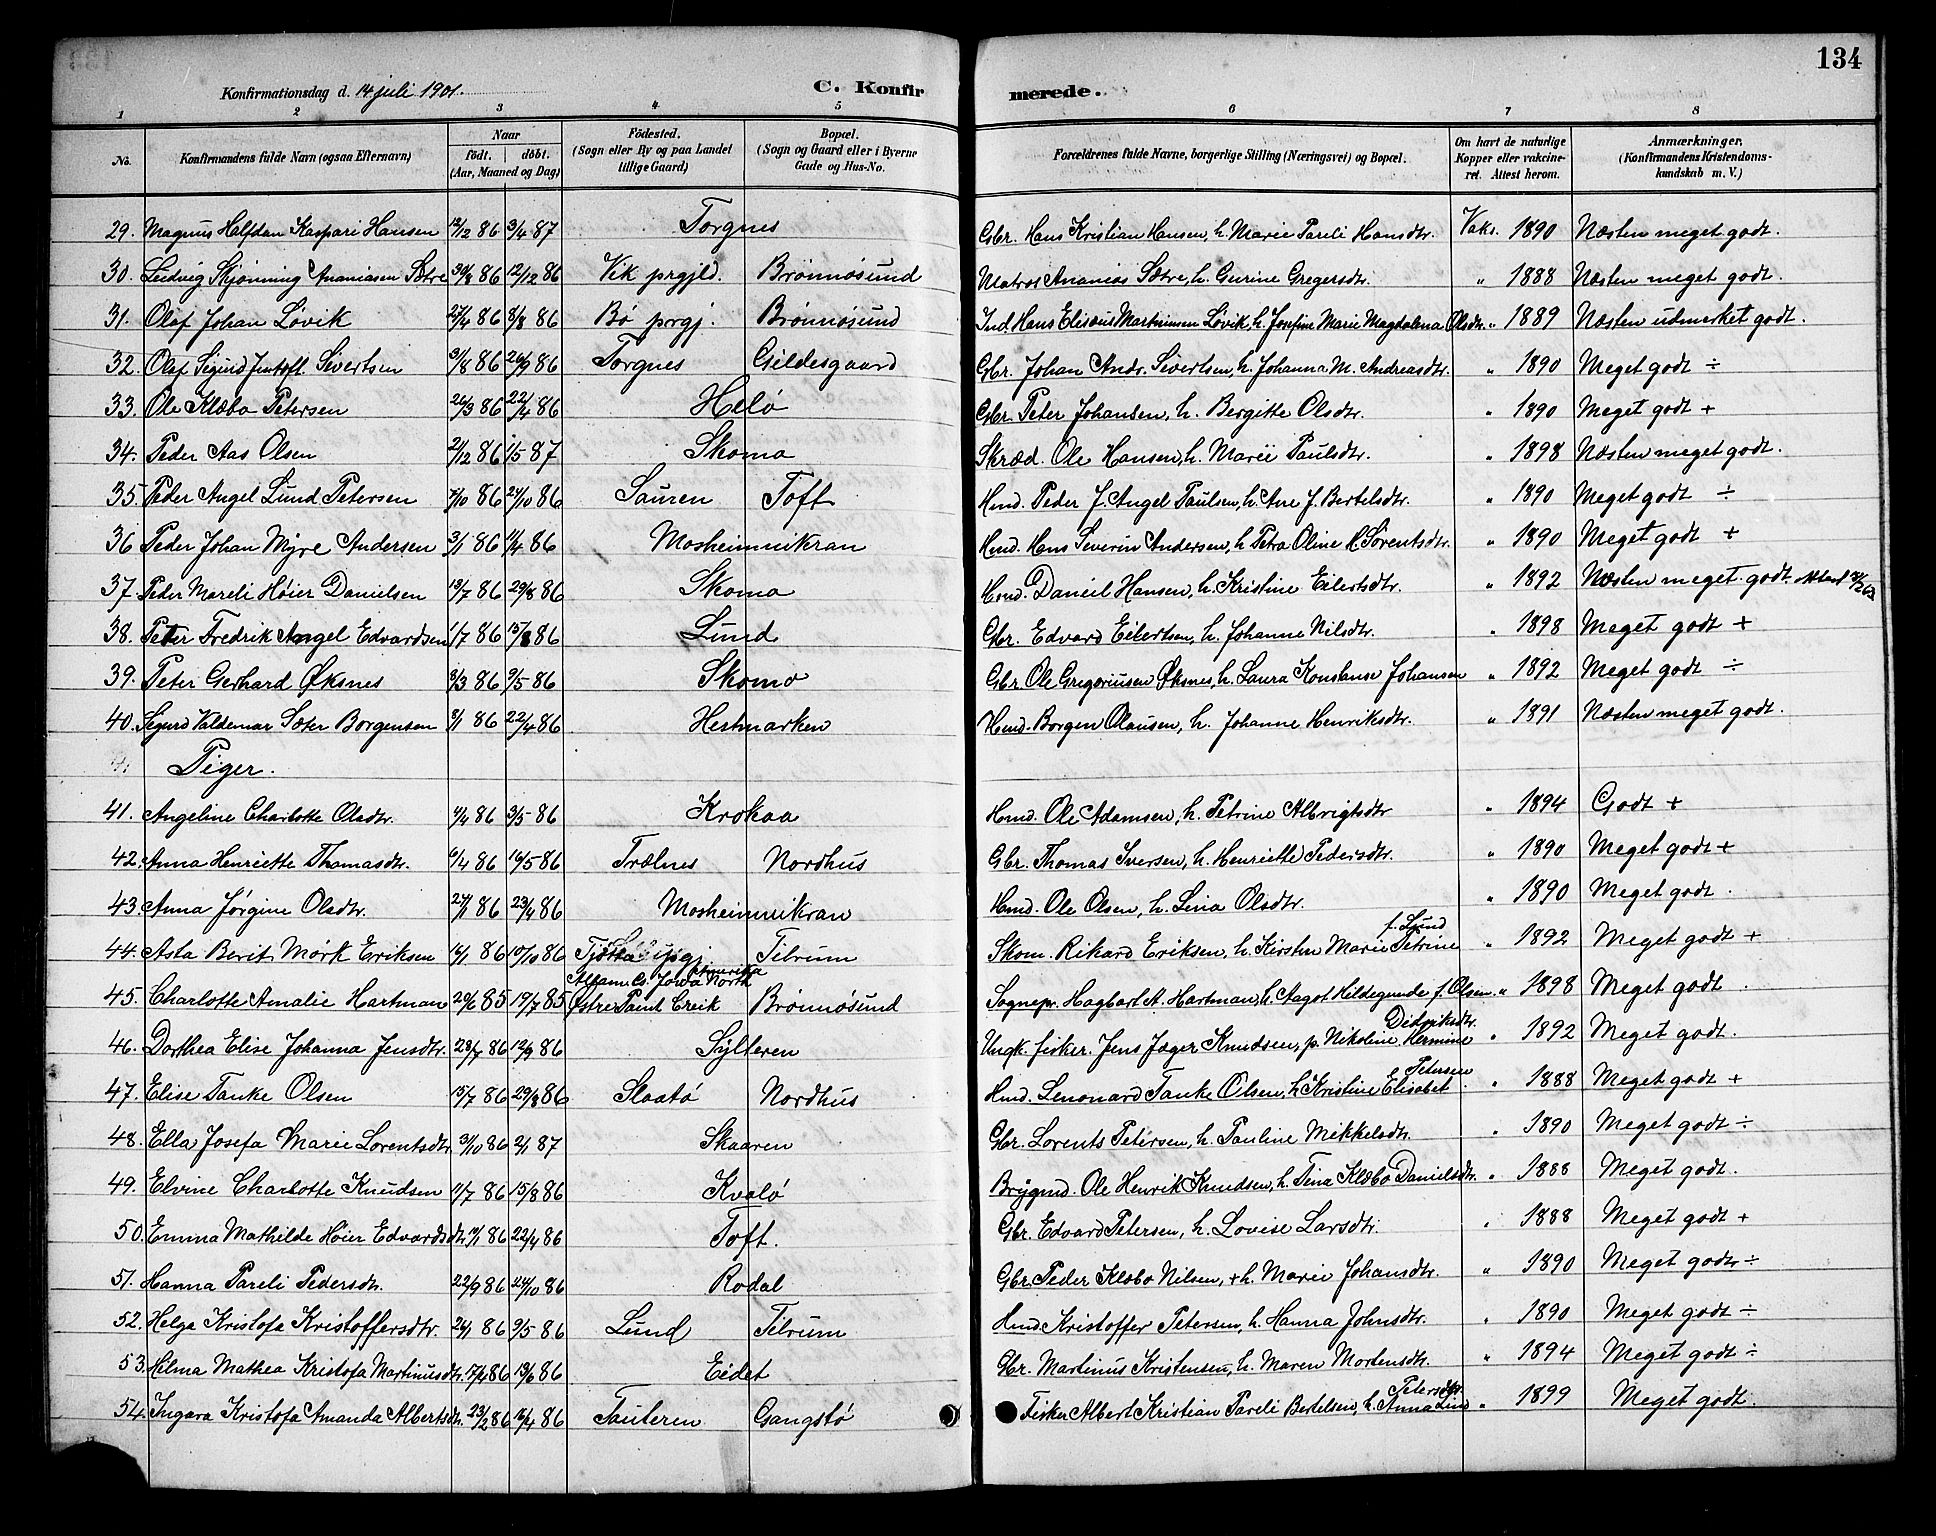 134
Konfirmationsdag d. 14 juli 1901. C. Konfirmerede.
1 2 3 4 5 6 7 8
No. Konfirmandens fulde Navn (ogsaa Efternavn) Naar födt. döbt. (Aar, Maaned og Dag) Födested. (Sogn eller By og paa Landet tillige Gaard) Bopæl. (Sogn og Gaard eller i Byerne Gade og Hus-No. Forældrenes fulde Navne, borgerlige Stilling (Næringsvei) og Bopæl. Om havt de naturlige Kopper eller vakcineret. Attest herom. Anmærkninger. (Konfirmandens Kristendomskundskab m. V.)
29. Magnus Halfdan Kaspari Hansen 12/12 86 3/4 87 Torgnes Gbr. Hans Kristian Hansen, h. Marie Pareli Hansdtr. Vaks. 1890 Næsten meget godt.
30. Ludvig Skjønning Ananiasen Sætre 30/8 86 12/12 86 Vik prgjld. Brönnösund Matros Ananias Sætre, h. Gurine Gregersdtr. " 1888 Næsten meget godt.
31. Olaf Johan Løvik 27/4 86 8/8 86 Bö prgj. Brönnösund Ind. Hans Elisæus Martinusen Lövik, h. Josefine Marie Magdalena Olsdtr. " 1889 Næsten udmerket godt.
32. Olaf Sigurd Jentoft Sivertsen 31/8 86 26/9 86 Torgnes Gildesgaard Gbr. Johan Andr. Sivertsen, h. Johanna M. Andreasdtr. " 1890 Meget godt ÷
33. Ole Klæbo Petersen 26/3 86 22/4 86 Helö Gbr. Peter Johansen, h. Bergitte Olsdtr. " 1890 Meget godt +
34. Peder Aas Olsen 21/12 86 1/5 87 Skomo Skræd. Ole Hansen, h. Marie Paulsdtr. " 1898 Næsten meget godt.
35. Peder Angel Lund Petersen 7/10 86 24/10 86 Sauren Toft Hmd. Peder J. Angel Paulsen, h. Ane J. Bertelsdtr. " 1890 Meget godt ÷
36 Peder Johan Myre Andersen 3/1 86 11/4 86 Mosheimvikran Hmd. Hans Severin Andersen, h. Petra Oline H. Sörentsdtr. " 1890 Meget godt +
37. Peder Mareli Høier Danielsen 13/7 86 29/8 86 Skomo Hmd. Daneil Hansen, h. Kristine Eilertsdtr. " 1892 Næsten meget godt.
38. Peter Fredrik Angel Edvardsen 1/7 86 15/8 86 Lund Gbr. Edvard Eilertsen, h. Johanne Nilsdtr. " 1898 Meget godt +
39. Peter Gerhard Øksnes 3/3 86 9/5 86 Skomo Gbr. Ole Gregoriusen Øksnes, h. Laura Konstanse Johansen " 1892 Meget godt ÷
40. Sigurd Valdemar Sæter Borgensen 8/1 86 22/4 86 Hestmarken Hmd. Borgen Olausen, h. Johanne Henriksdtr. " 1891 Næsten meget godt.
Piger.
41. Angeline Charlotte Olsdtr. 4/4 86 3/5 86 Krokaa Hmd. Ole Adamsen, h. Petrine Albrigtsdtr " 1894 Godt +
42. Anna Henriette Thomasdtr. 6/4 86 16/5 86 Trælnes Nordhus Gbr. Thomas Iversen, h. Henriette Pedersdtr. " 1890 Meget godt +
43. Anna Jörgine Olsdtr. 27/1 86 23/4 86 Mosheimvikran Hmd. Ole Olsen, h. Lina Olsdtr. " 1890 Meget godt.
44. Asta Berit Mörk Eriksen 14/1 86 10/10 86 Tjötta prgj. Tilrum Skom. Rikard Eriksen, h. Kirsten Marie Petrine f. Lund " 1892 Meget godt +
45. Charlotte Amalie Hartman 29/6 85 19/7 85 Allam. Co. Jowa North Amerika Östre Paint Creik Brönnösund Sognepr. Hagbart A. Hartman, h. Aagot Hildegunde f. Olsen. " 1898 Meget godt.
46. Dorthea Elise Johanna Jensdtr. 28/7 86 12/9 86 Sylteren Ungk. fisker. Jens Jæger Knudsen, p. Nikoline Hermine Didriksdtr. " 1892 Meget godt.
47. Elise Tanke Olsen 15/7 86 29/8 86 Slaatö Nordhus Hmd. Lenonard Tanke Olsen, h Kristine Elisabet Petersen " 1888 Meget godt +
48. Ella Josefa Marie Lorentsdtr. 31/10 86 2/1 87 Skaaren Gbr. Lorents Petersen, h. Pauline Mikkelsdtr. " 1890 Meget godt ÷
49. Elvine Charlotte Knudsen 11/7 86 15/8 86 Kvalö Brygmd. Ole Henrik Knudsen, h. Tina Klæbo Danielsdtr. " 1888 Meget godt.
50. Emma Mathilde Høier Edvardsdtr. 14/1 86 22/4 86 Toft. Gbr. Edvard Petersen, h. Lovise Larsdtr. " 1888 Meget godt +
51. Hanna Pareli Pedersdtr. 22/9 86 24/10 86 Rodal Gbr. Peder Klæbo Nilsen, + h. Marie Johansdtr. " 1890 Meget godt ÷
52. Helga Kristofa Kristoffersdtr. 24/1 86 9/5 86 Lund Tilrum Hmd. Kristoffer Petersen, h. Hanna Johnsdtr. " 1890 Meget godt ÷
53. Hilma Mathea Kristofa Martinusdtr. 17/4 86 13/6 86 Eidet Gbr. Martinus Kristensen, h. Maren Mortensdtr. " 1894 Meget godt ÷
54. Ingara Kristofa Amanda Albertsdtr. 23/2 86 15/4 86 Tauteren Gangstö Fisker Albert Kristian Pareli Bertelsen, h. Anna Lind Petersdtr. " 1899 Meget godt.